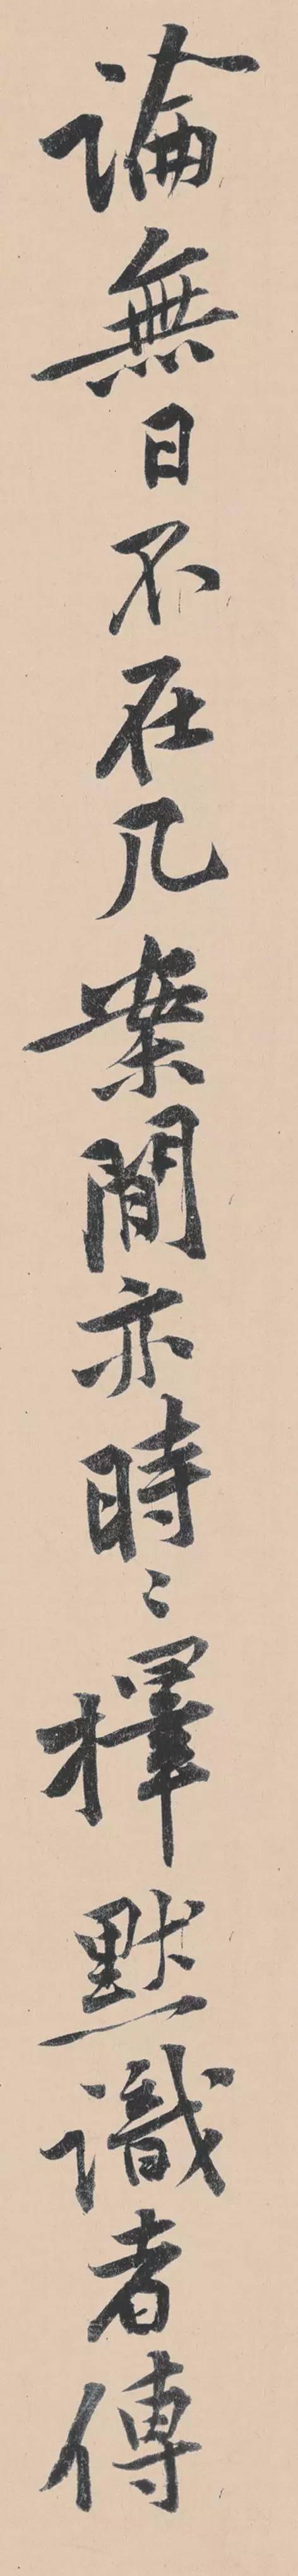 論無日不在几案間亦時〻擇默識者傳